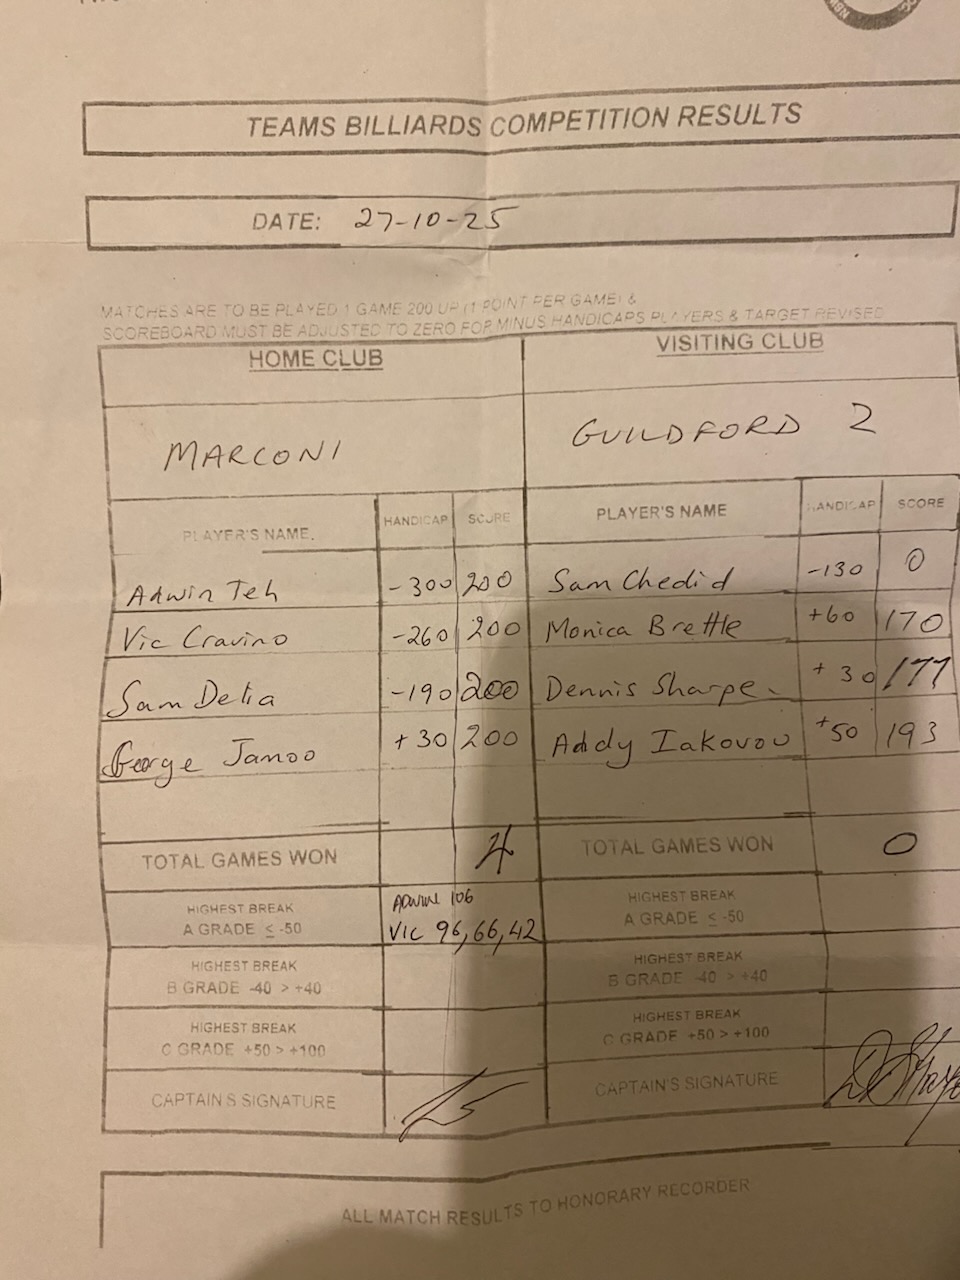 TEAMS BILLIARDS COMPETITION RESULTS
DATE: 27-10-25
MATCHES ARE TO BE PLAYED 1 GAME 200 UP (1 POINT PER GAME) &
SCOREBOARD MUST BE ADJUSTED TO ZERO FOR MINUS HANDICAPS PLAYERS & TARGET REVISED
HOME CLUB VISITING CLUB
MARCONI GUILDFORD 2
PLAYER'S NAME. HANDICAP SCORE PLAYER'S NAME HANDICAP SCORE
Adwin Teh -300 200 Sam Chedid -130 0
Vic Cravino -260 200 Monica Brettle +60 170
Sam Delia -190 200 Dennis Sharpe +30 177
George Janoo +30 200 Addy Iakovou +50 193
TOTAL GAMES WON 4 TOTAL GAMES WON 0
HIGHEST BREAK
A GRADE ≤ -50
106
VIC 96,66,42
HIGHEST BREAK
A GRADE ≤ -50
HIGHEST BREAK
B GRADE -40 > +40
HIGHEST BREAK
B GRADE -40 > +40
HIGHEST BREAK
C GRADE +50 > +100
HIGHEST BREAK
C GRADE +50 > +100
CAPTAIN'S SIGNATURE CAPTAIN'S SIGNATURE
ALL MATCH RESULTS TO HONORARY RECORDER